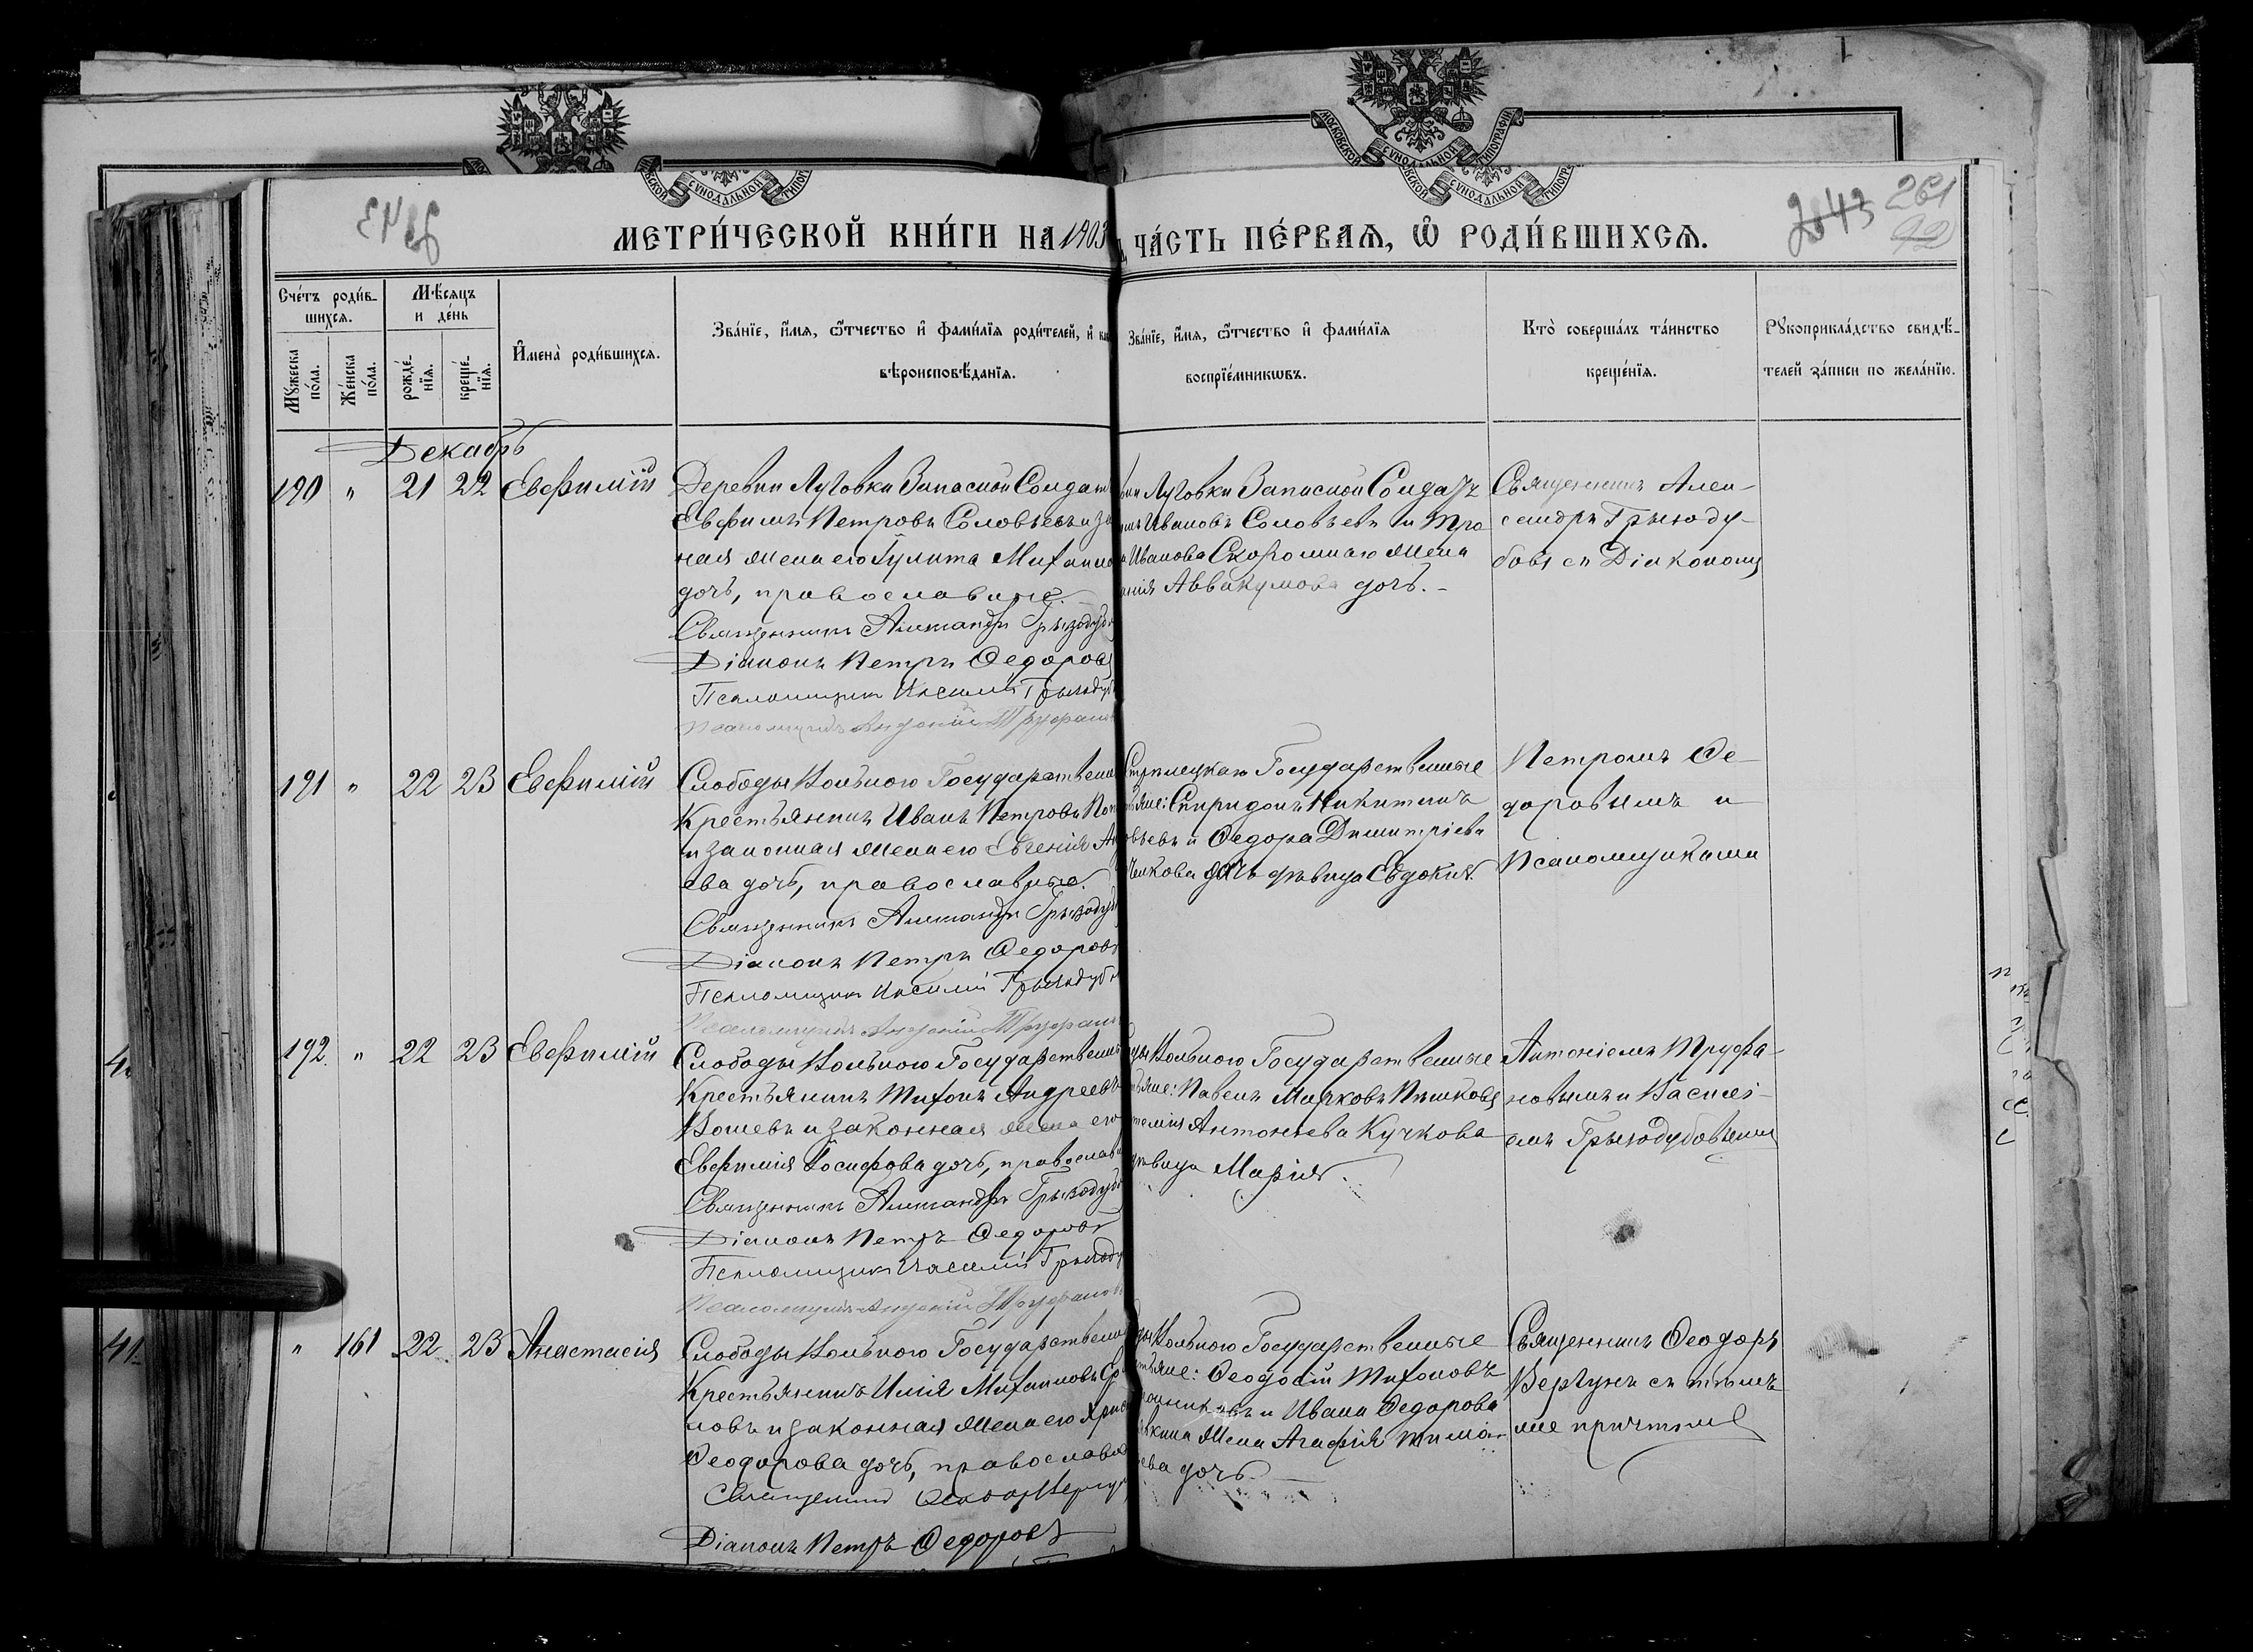 МЕТРИ́ЧЕСКОЙ КНИ́ГИ НА 1903
ЧА́СТЬ ПЕ́РВАѦ, Ѽ РОДИ́ВШИХСѦ.
2043 261
Сче́тъ роди́в-
шихсѧ.
Мꙋжеска по́ла.
Же́нска по́ла.
Мѣ́сѧцъ
и де́нь
рожде́-
нїѧ.
креще́-
нїѧ.
И҆мена̀ роди́вшихсѧ.
Зва́нїе, и҆́мѧ, ѻ҆́тчество и҆ фами́лїѧ роди́телей, и҆
вѣроисповѣ́данїѧ.
Зва́нїе, и҆́мѧ, ѻ҆́тчество и҆ фами́лїѧ
воспрїе́мникѡвъ.
Кто̀ соверша́лъ та́инство
креще́нїѧ.
Рꙋкоприкла́дство свидѣ́-
телей за́писи по жела́нїю.
Декабрь
190 " 21 22 Евфимій
Деревни Луговки Запасной Солдат
Евфимъ Петровъ Соловьевъ и за
ная жена его Іулита Михаило
дочь, православные.
Священникъ Александръ Грызодуб
Діаконъ Петръ Ѳедоровъ
Псаломщикъ Василій Грызодуб
Псаломщикъ Антоній Труфанов
Луговки Запасной Солдатъ
Ивановъ Соловьевъ и Тро
Иванова Скоромнаго жена
Аввакумова дочь.-
Священникъ Алек-
сандръ Грызоду-
бовъ съ Діакономъ
191 " 22 23 Евфимій
Слободы Вольного Государствен
Крестьянинъ Иванъ Петровъ Поп
и законная жена его Евгенія Ан
ева дочь, православные.
Священникъ Александръ Грызодуб
Діаконъ Петръ Ѳедоровъ
Псаломщикъ Василій Грызодуб
Псаломщикъ Антоній Труфан
Стрѣлецкаго Государственные
Спиридонъ Никитинъ
и Ѳедора Димитріева
дочь дѣвица Евдокія.
Петромъ Ѳе-
доровымъ и
Псаломщиками
192 " 22 23 Евфимій
Слободы Вольного Государствен
Крестьянинъ Тихонъ Андреевъ
Вошевъ и законная жена его
Евфимія Іосифова дочь, православ
Священникъ Александръ Грызодуб
Діаконъ Петръ Ѳедоровъ
Псаломщикъ Василій Грызоду
Псаломщикъ Антоній Труфанов
Вольного Государственные
Павелъ Марковъ Пѣшковъ
Антоньева Кучкова
дѣвица Марія.
Антоніемъ Труфа-
новымъ и Василі-
емъ Грызодубовыми
" 161 22 23 Анастасія
Слободы Вольного Государствен
Крестьянинъ Илія Михаиловъ
новъ и законная жена его Хрис
Ѳеодорова дочь, православн
Священникъ Ѳеодоръ Вергун
Діаконъ Петръ Ѳедоровъ
Вольного Государственные
Ѳеодосій Тихоновъ
и Ивана Ѳедорова
жена Агафія Тимо-
ева дочь.
Священникъ Ѳеодоръ
Вергунъ съ тѣмъ
же причтомъ